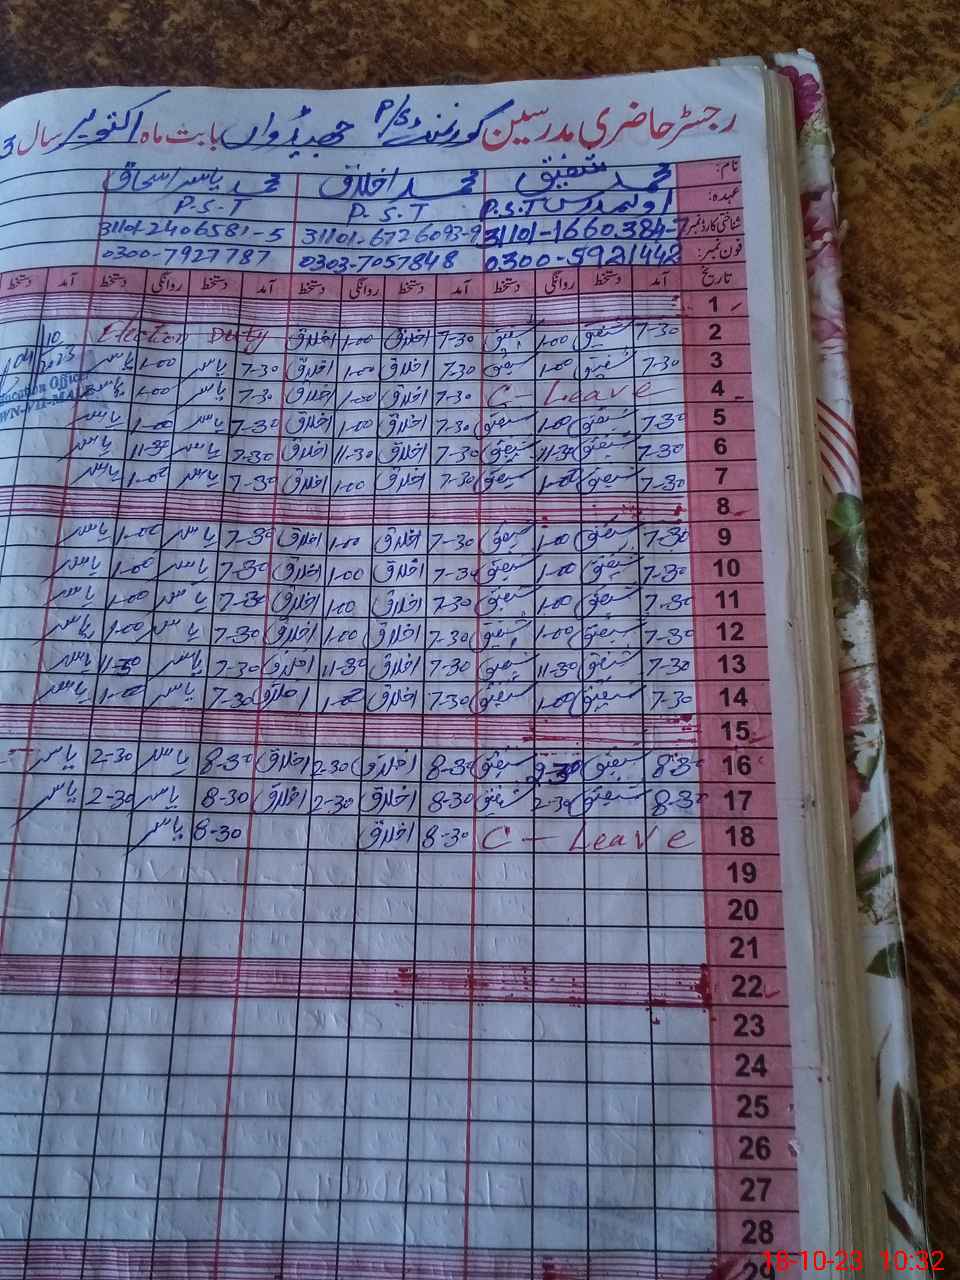 رجسٹر حاضری مدرسین گورنمنٹ P/S جھبیڈواں بابت ماہ اکتوبر سال 3
نام: محمد شفیق محمد اخلاق محمد یاسر اسحاق
عہدہ: اول مدرس P.S.T P.S.T P.S.T
شناختی کارڈ نمبر 31101-1660384-7 31101-6726093-9 31101-2406581-5
فون نمبر: 0300-5921442 0303-7057848 0300-7927787
تاریخ آمد دستخط روانگی دستخط آمد دستخط روانگی دستخط آمد دستخط روانگی دستخط آمد دستخط
1
2 7-30 شفیق 1-00 شفیق 7-30 اخلاق 1-00 اخلاق Election Duty
3 7-30 شفیق 1-00 شفیق 7-30 اخلاق 1-00 اخلاق 7-30 یاسر 1-00 یاسر
4 C - Leave 7-30 اخلاق 1-00 اخلاق 7-30 یاسر 1-00 یاسر
5 7-30 شفیق 1-00 شفیق 7-30 اخلاق 1-00 اخلاق 7-30 یاسر 1-00 یاسر
6 7-30 شفیق 11-30 شفیق 7-30 اخلاق 11-30 اخلاق 7-30 یاسر 11-30 یاسر
7 7-30 شفیق 1-00 شفیق 7-30 اخلاق 1-00 اخلاق 7-30 یاسر 1-00 یاسر
8
9 7-30 شفیق 1-00 شفیق 7-30 اخلاق 1-00 اخلاق 7-30 یاسر 1-00 یاسر
10 7-30 شفیق 1-00 شفیق 7-30 اخلاق 1-00 اخلاق 7-30 یاسر 1-00 یاسر
11 7-30 شفیق 1-00 شفیق 7-30 اخلاق 1-00 اخلاق 7-30 یاسر 1-00 یاسر
12 7-30 شفیق 1-00 شفیق 7-30 اخلاق 1-00 اخلاق 7-30 یاسر 1-00 یاسر
13 7-30 شفیق 11-30 شفیق 7-30 اخلاق 11-30 اخلاق 7-30 یاسر 11-30 یاسر
14 7-30 شفیق 1-00 شفیق 7-30 اخلاق 1-00 اخلاق 7-30 یاسر 1-00 یاسر
15
16 8-30 شفیق 2-30 شفیق 8-30 اخلاق 2-30 اخلاق 8-30 یاسر 2-30 یاسر
17 8-30 شفیق 2-30 شفیق 8-30 اخلاق 2-30 اخلاق 8-30 یاسر 2-30 یاسر
18 C - Leave 8-30 اخلاق 8-30 یاسر
19
20
21
22
23
24
25
26
27
28
29
18-10-23 10:32